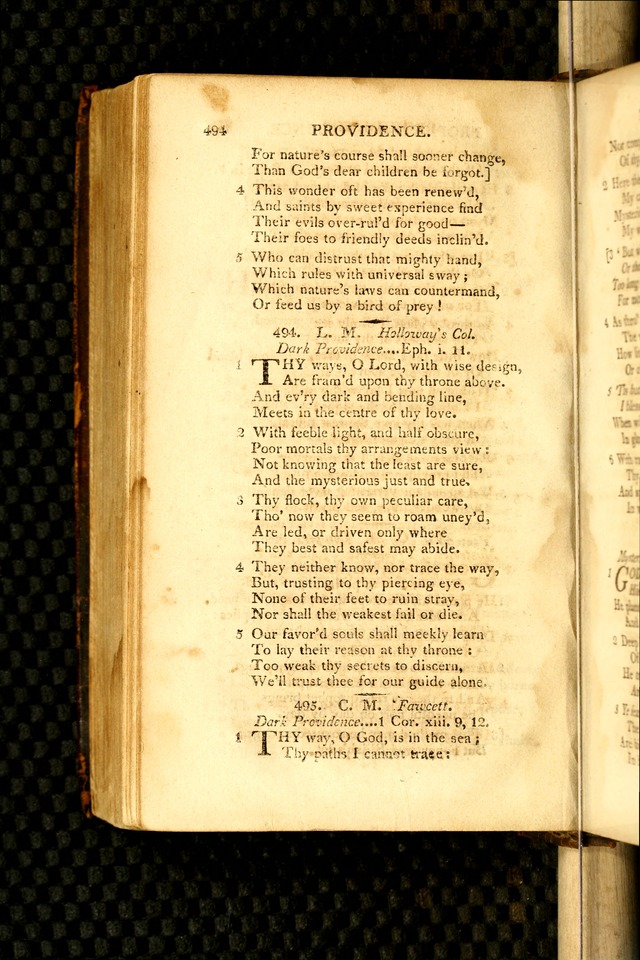 494 PROVIDENCE.
For nature's course shall sooner change,
Than God's dear children be forgot.]
4 This wonder oft has been renew'd,
And saints by sweet experience find
Their evils over-rul'd for good—
Their foes to friendly deeds inclin'd.
5 Who can distrust that mighty hand,
Which rules with universal sway;
Which nature's laws can countermand,
Or feed us by a bird of prey!
494. L. M. Holloway's Col.
Dark Providence....Eph. i. 11.
1 THY ways, O Lord, with wise design,
Are fram'd upon thy throne above.
And ev'ry dark and bending line,
Meets in the centre of thy love.
2 With feeble light, and half obscure,
Poor mortals thy arrangements view:
Not knowing that the least are sure,
And the mysterious just and true.
3 Thy flock, thy own peculiar care,
Tho' now they seem to roam uney'd,
Are led, or driven only where
They best and safest may abide.
4 They neither know, nor trace the way,
But, trusting to thy piercing eye,
None of their feet to ruin stray,
Nor shall the weakest fail or die.
5 Our favor'd souls shall meekly learn
To lay their reason at thy throne:
Too weak thy secrets to discern,
We'll trust thee for our guide alone.
495. C. M. Fawcett.
Dark Providence....1 Cor. xiii. 9, 12.
1 THY way, O God, is in the sea;
Thy paths I cannot trace: